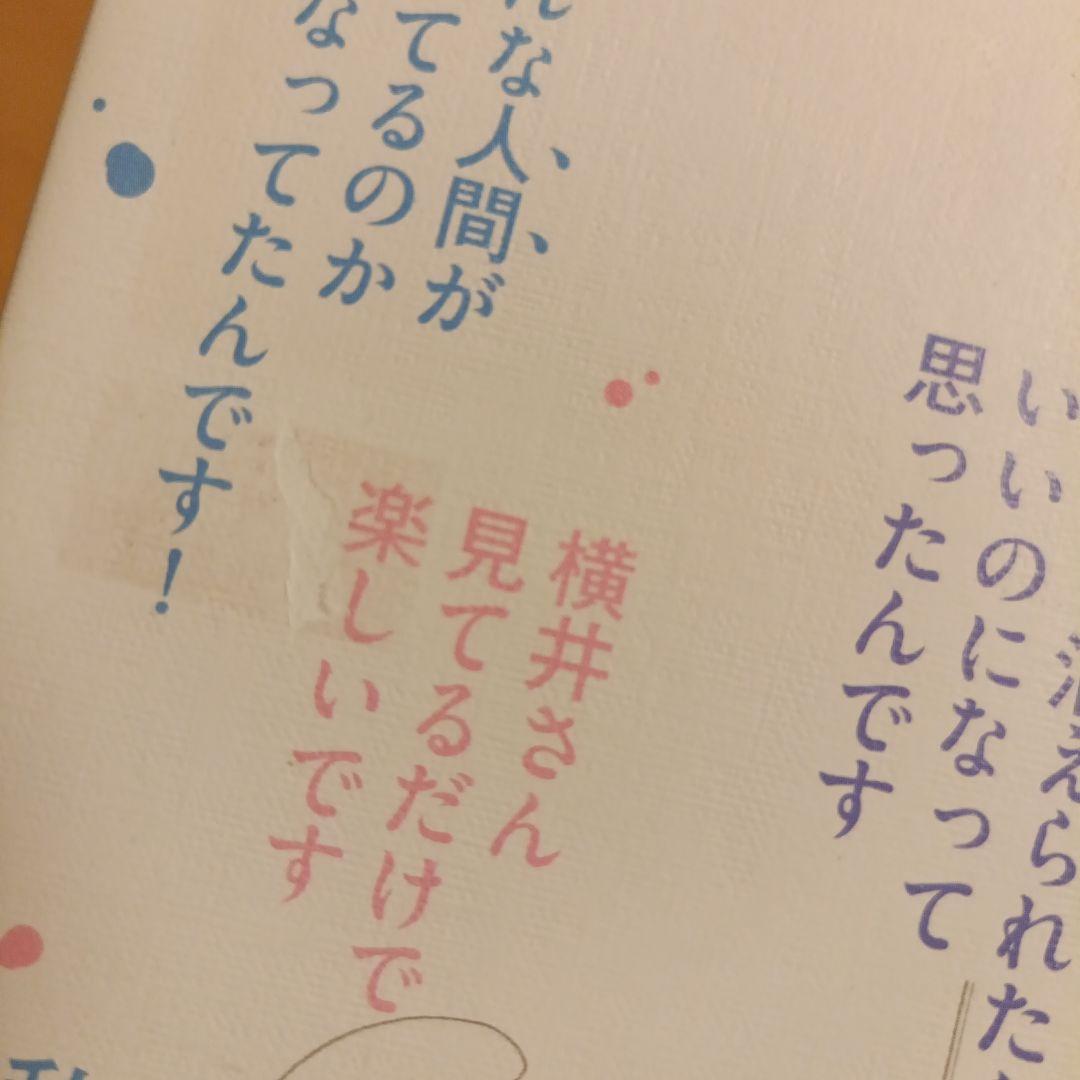 消えられた
いいのになって
思ったんです
んな人間が
てるのか
なってたんです！
横井さん
見てるだけで
楽しいです
私